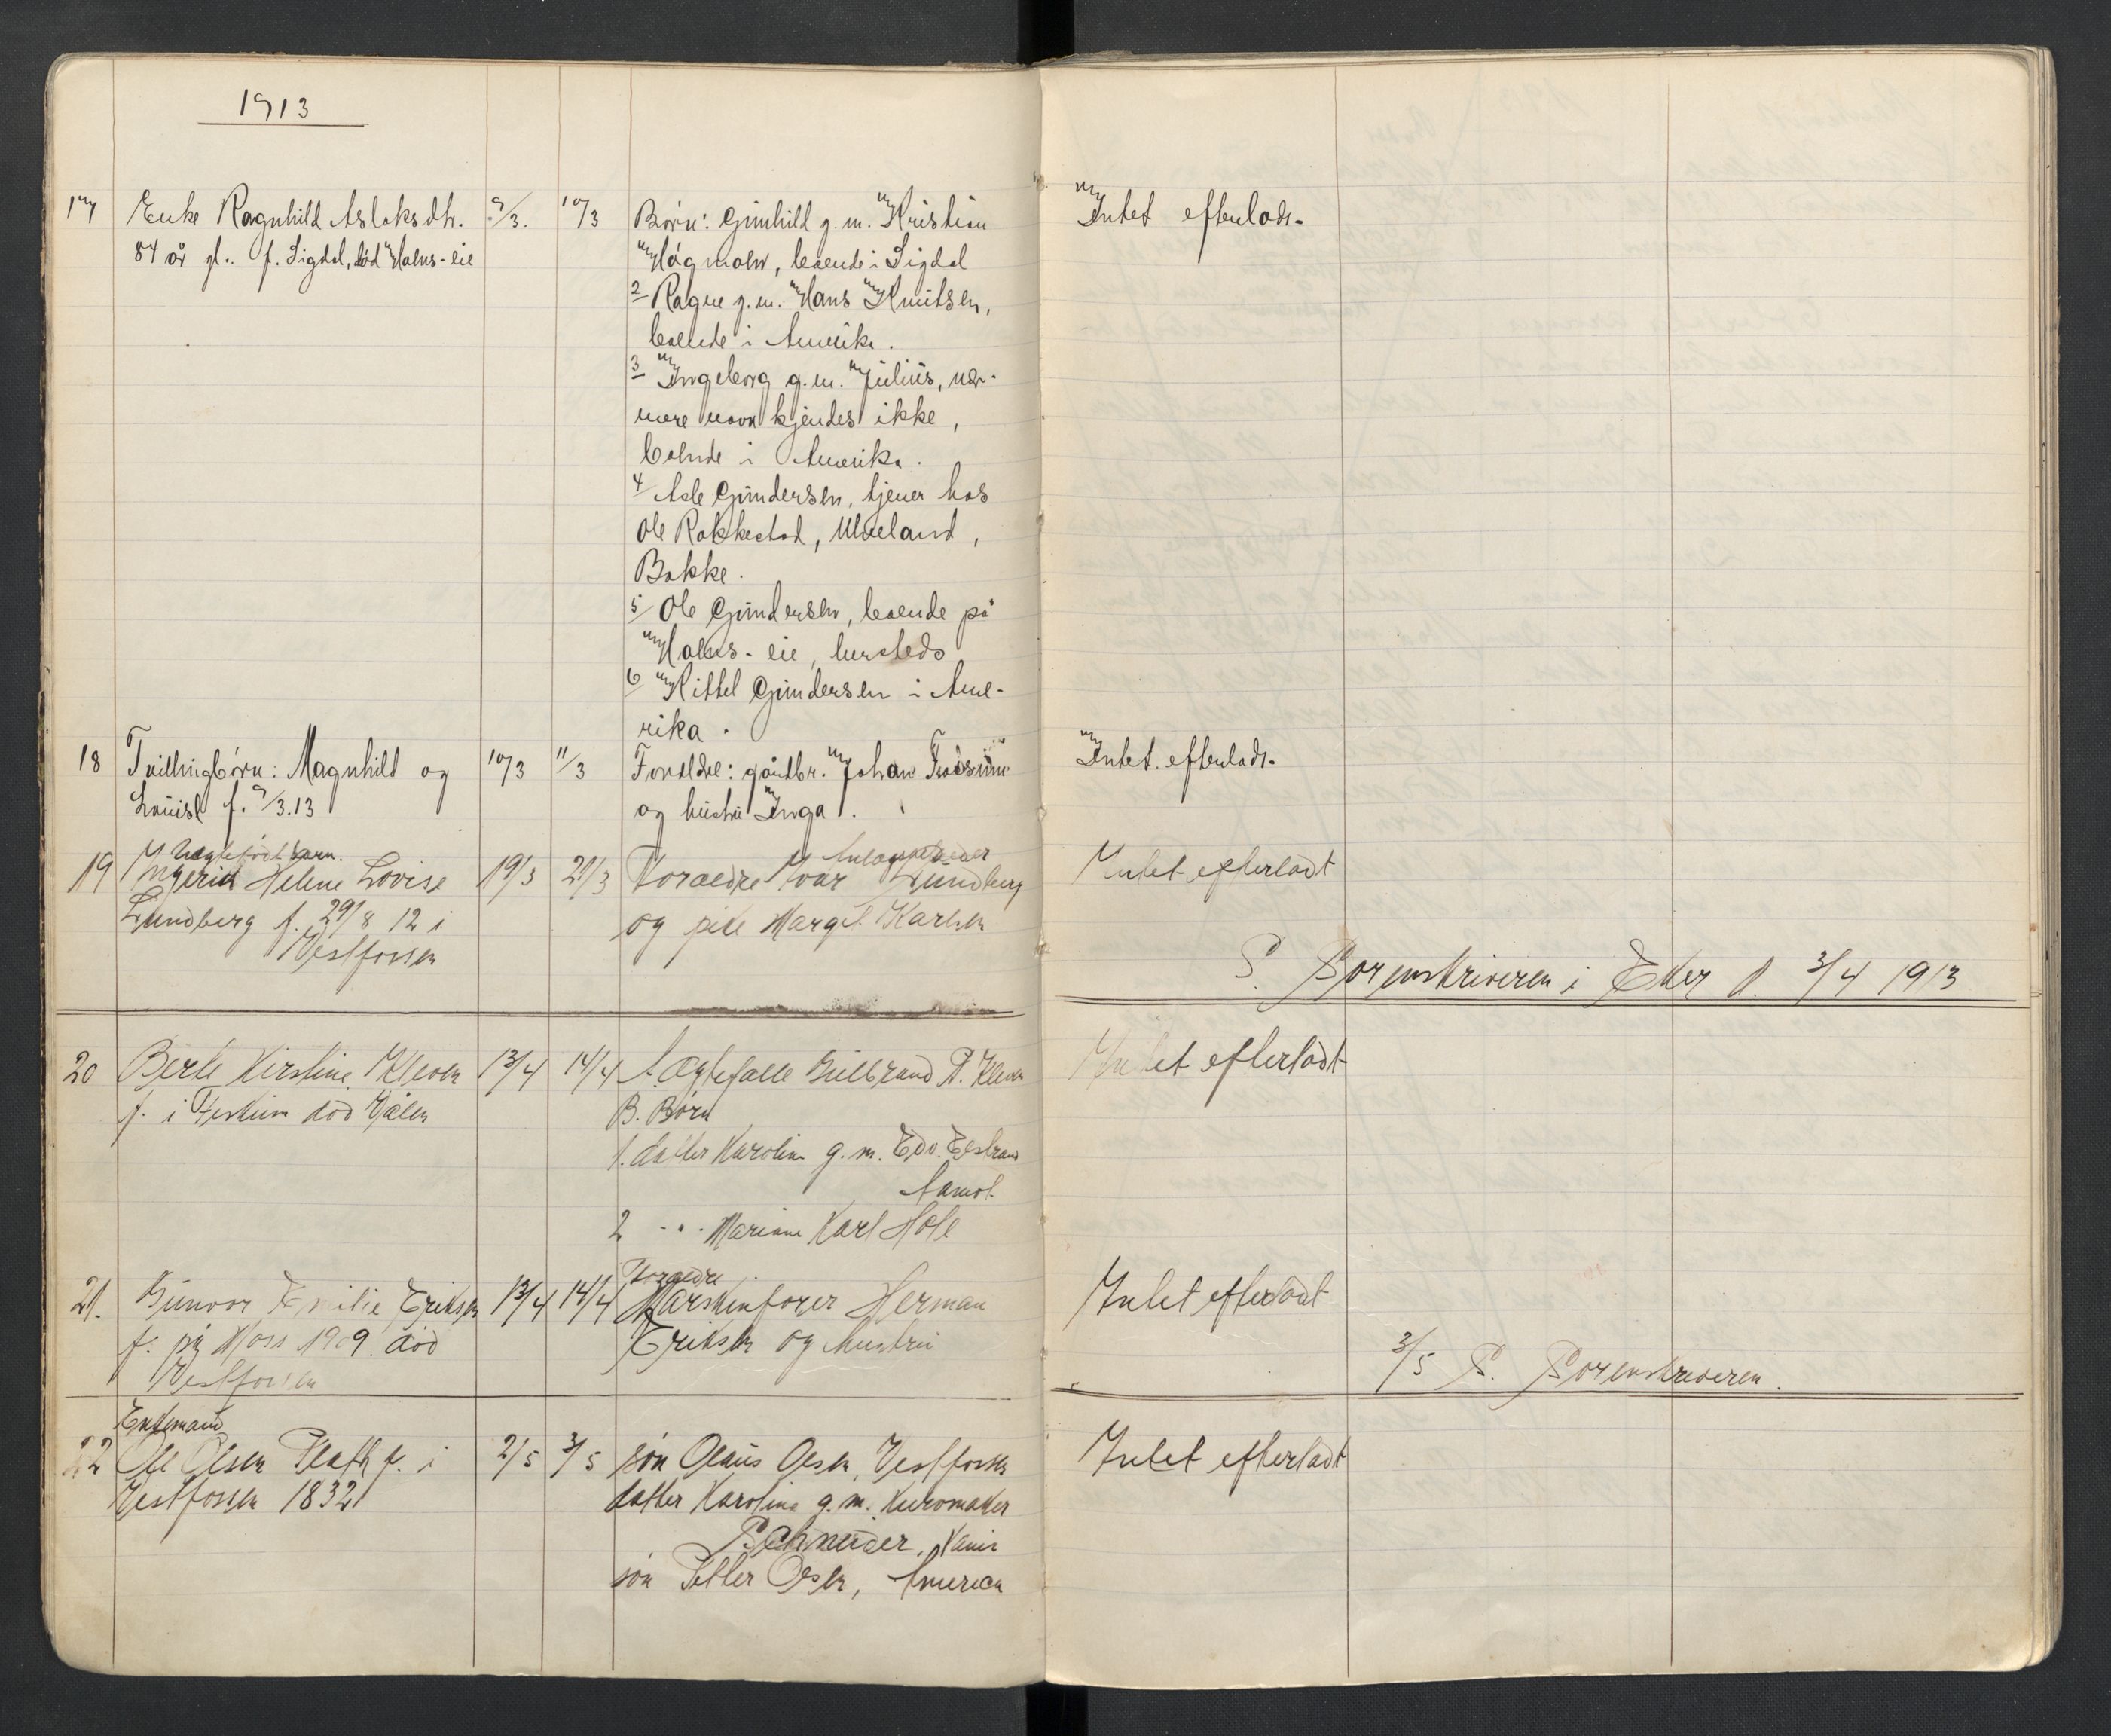 1913
17 Enke Ragnhild Aslaksdtr. 9/3. 10/3 Börn: Gunhild g. m. Kristian Intet efterladt.
84 år gl. f. Sigdal, död Hals-eie
boende i Sigdal
2 Ragne g. m. Hans Knutsen,
boende i Amerika.
3 Ingeborg g. m. Julius, nær-
mere navn kjendes ikke,
boende i Amerika.
4 Asle Gundersen, tjener hos
Ole Rokkestad,
Bakke.
5 Ole Gundersen, boende på
Hals-eie, hersteds
6 Kittel Gundersen i Ame-
rika.
18 Tvillingbörn: Magnhild og 10/3 11/3 Foreldre: gårdbr. Johan Intet efterladt.
Louise f. 9/3.13 og hustru Inga.
Uægtefödt barn.
19 Ingerid Helene Lovise 19/3 21/3 Foraeldre Ivar Lundberg Intet efterladt
Lundberg f. 29/8 12 i og pike Margit Karlsen
Vestfossen
S. Sorenskriveren i Eker d. 3/4 1913
20 Berte Kirstine Kleven 13/4 14/4 A. Ægtefælle Gulbrand P. Kleven Intet efterladt
f. i Fiskum död Vålen B. Börn
1. datter Karoline g. m. Edv. Elstrand
Aamot
2 - " - Mariane Karl Hole
Foraeldre
21. Gunvor Emilie Eriksen 13/4 14/4 Maskinfører Herman Intet efterladt
f. på Moss 1909. död Eriksen og hustru
Vestfossen
3/5 S. Sorenskriveren.
Enkemand
22 Ole Olsen f. i 2/5 3/5 sön Olaus Olsen, Vestfossen Intet efterladt
Vestfossen 1832 datter Karoline g. m. Kurvmaker
Schneider,
sön Petter Olsen, America